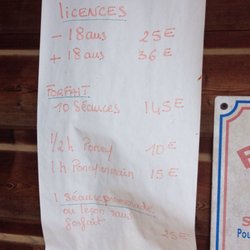 LICENCES
- 18 aus 25€
+ 18 aus 36€
FORFAIT
10 Séances 145€
1/2h Poney 10€
1h Poney main 15€
1 Séance promenade
ou leçon sans
forfait
25€